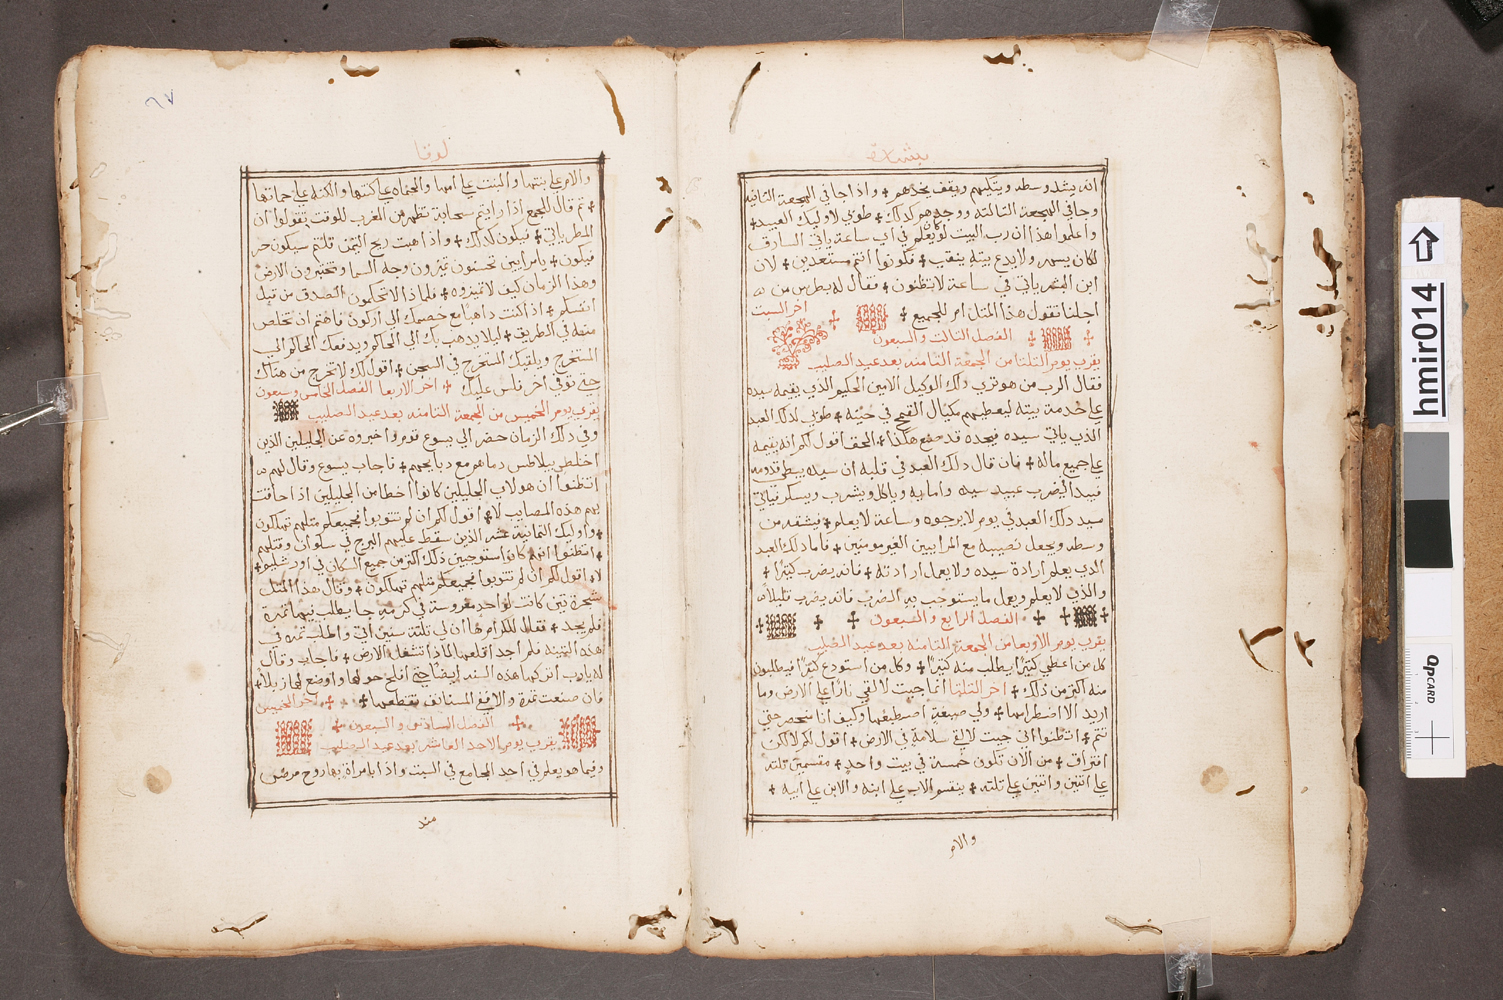 بشارة
انه يشد وسطه ويتكيهم ويقف يخدمهم + واذا جا في الهجعة الثانيه
وجا في الهجعة الثالثه ووجدهم كدلك + طوبي لاوليك العبيد +
واعلموا هذا ان رب البيت لو كان يعلم في اي ساعة ياتي السارق
لكان يسهر ولا يدع بيته ينقب + فكونوا انتم مستعدين + لان
ابن البشر ياتي في ساعة لا تظنون + فقال له بطرس من
اجلنا تقول هذا المثل ام للجميع + اخر السبت
الفصل الثالث والسبعون
يقرب يوم الثلثا من الجمعة الثامنه بعد عيد الصليب
فقال الرب من هو تري ذلك الوكيل الامين الحكيم الذي يقيمه سيده
علي خدمة بيته ليعطيهم مكيال القمح في حينه + طوبي لذلك العبد
الذي ياتي سيده فيجده قد صنع هكذا + الحق اقول لكم انه يقيمه
علي جميع ماله + فان قال ذلك العبد في قلبه ان سيده يبطي قدومه
فيبدا يضرب عبيد سيده واماييه وياكل ويشرب ويسكر فياتي
سيد ذلك العبد في يوم لا يرجوه وساعة لا يعلم + فيشقه من
وسطه ويجعل نصيبه مع المراييين الغير مومنين + فاما ذلك العبد
الذي يعلم ارادة سيده ولا يعمل ارادته + فانه يضرب كثيرًا +
والذي لا يعلم ويعمل ما يستوجب به الضرب فانه يضرب قليلا
الفصل الرابع والسبعون
يقرب يوم الاربعا من الجمعة الثامنه بعد عيد الصليب
كل من اعطي كثيرًا يطلب منه كثيرًا + وكل من استودع كثيرًا فيطلبون
منه اكثر من ذلك + اخر الثلثا انما جيت لالقي نارًا علي الارض وما
اريد الا اضطرامها + ولي صبغة اصطبغها وكيف انا منحصر حتي
تتم + اتظنوا اني جيت لالقي سلامة في الارض + اقول لكم لا لكن
افتراق + من الان تكون خمسة في بيت واحد + مقسمين ثلثه
علي اثنين واثنين علي ثلثه + ينقسم الاب علي ابنه والابن علي ابيه +
والام
لوقا
٩٧
والام علي بنتها والبنت علي امها والحماه علي كنتها والكنه علي حماتها
+ ثم قال للجمع اذا رايتم سحابة تظهر من الغرب للوقت تقولوا ان
المطر ياتي + فيكون كذلك + واذا هبت ريح اليمن قلتم سيكون حر
فيكون + يا مراييين تحسنون تميزون وجه السما وتختبرون الارض
وهذا الزمان كيف لا تميزوه + فلماذا لا تحكمون الصدق من قبل
انفسكم + اذا كنت ذاهبا مع خصمك الي اركون فاهتم ان تخلص
منه في الطريق + ليلا يذهب بك الي الحاكم ويدفعك الحاكم الي
المستخرج ويلقيك المستخرج في السجن + اقول لك لا تخرج من هناك
حتي توفي اخر فلس عليك + اخر الاربعا الفصل الخامس وسبعون
يقرب يوم الخميس من الجمعة الثامنه بعد عيد الصليب
وفي ذلك الزمان حضر الي يسوع قوم واخبروه عن الجليليين الذين
اخلطي بيلاطس دماهم مع دبايحهم + فاجاب يسوع وقال لهم
اتظنوا ان هولاي الجليليين كانوا اخطا من الجليليين اذا حاقت
بهم هذه المصايب لا + اقول لكم ان لم تتوبوا فجميعكم مثلهم تهلكون
+ واوليك الثمانية عشر الذين سقط عليهم البرج في سلوان وقتلهم
+ اتظنوا انهم كانوا استوجبين ذلك اكثر من جميع السكان في اورشليم +
لا + اقول لكم ان لم تتوبوا فجميعكم مثلهم تهلكون + وقال هذا المثل
شجرة تين كانت لواحد مغروسة في كرمه جا يطلب فيها ثمرة
فلم يجد + فقال للكرام ها ان لي ثلثة سنين اتي واطلب ثمره في
هذه التينه فلم اجد اقطعها لماذا تشغل الارض + فاجاب وقال
له يا رب اتركها هذه السنه ايضًا حتي افلح حولها واوضع لها زبلا +
فان صنعت ثمرة والا في المستانف تقطعها + + اخر الخميس
+ الفصل السادس والسبعون +
يقرب يوم الاحد العاشر بعد عيد الصليب
وفيما هو يعلم في احد المجامع في السبت واذا بامراة بها روح مرض
منذ
hmir014
QP CARD